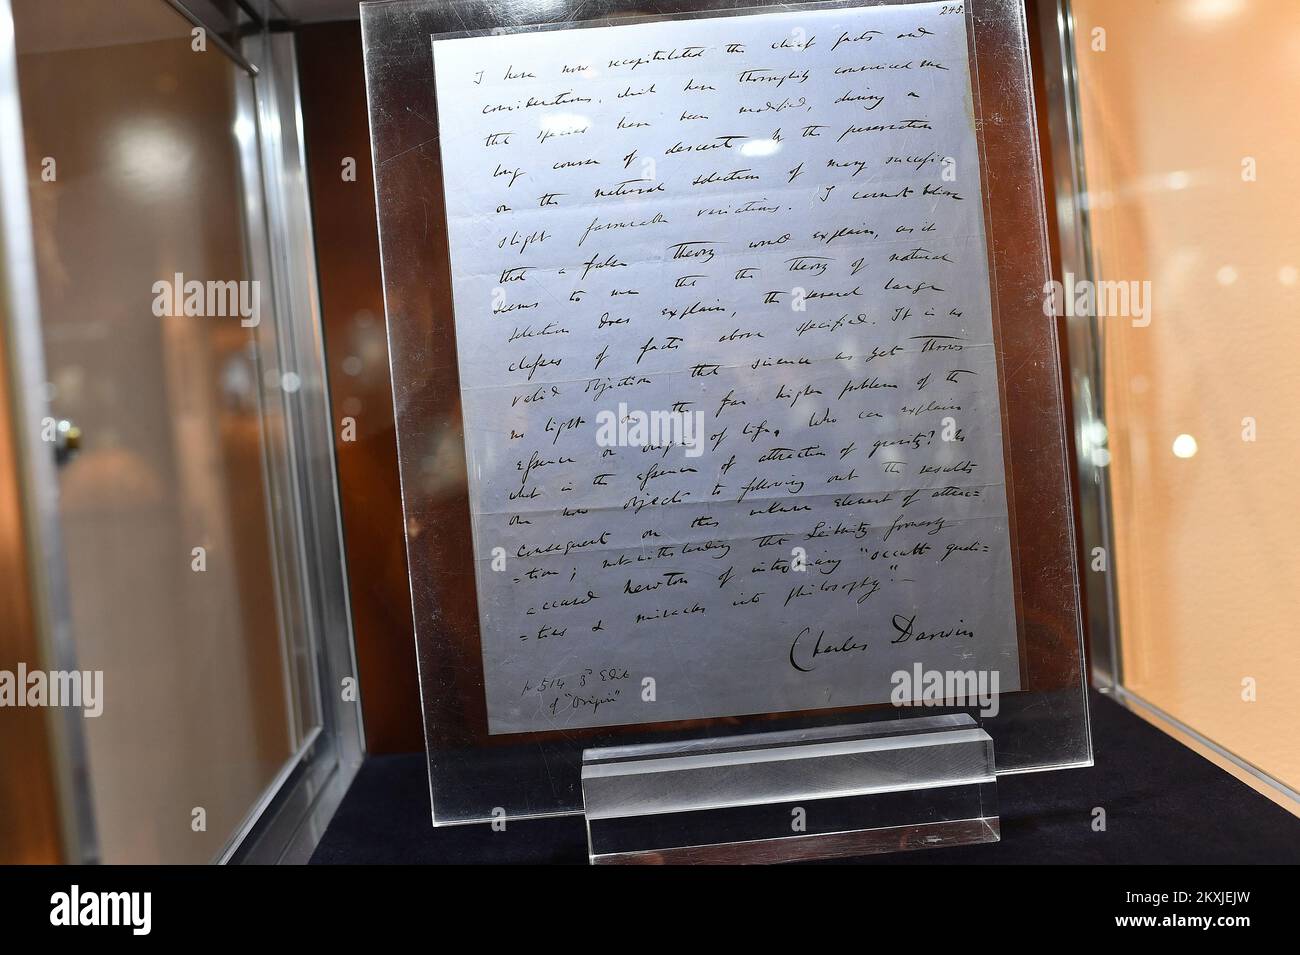 245.
I have now recapitulated the chief facts and
considerations, which have thoroughly convinced me
that species have been modified, during a
long course of descent by the preservation
or the natural selection of many successive
slight favourable variations. I cannot believe
that a false theory would explain, as it
seems to me that the theory of natural
selection does explain, the several large
classes of facts above specified. It is no
valid objection that science as yet throws
no light on the far higher problem of the
essence or origin of life. Who can explain
what is the essence of attraction of gravity? No
one now objects to following out the results
consequent on this unknown element of attrac=
=tion; notwithstanding that Leibnitz formerly
accused Newton of introducing "occult quali=
=ties & miracles into philosophy."—
Charles Darwin
p 514 3d Edit
of "Origin"
alamy
alamy
Image ID: 2KXJEJW
www.alamy.com